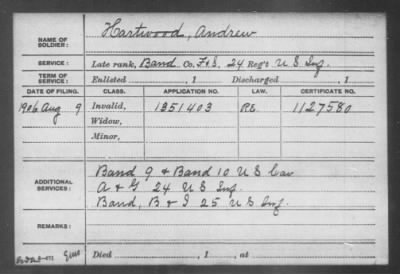 NAME OF SOLDIER: Hartwood, Andrew
SERVICE: Late rank, Band Co. F&S, 24 Reg't U S Inf.
TERM OF SERVICE: Enlisted , 1 Discharged , 1
DATE OF FILING. CLASS. APPLICATION NO. LAW. CERTIFICATE NO.
1906 Aug 9 Invalid, 1351403 1127580
Widow,
Minor,
ADDITIONAL SERVICES: Band 9 & Band 10 U S Cav
A & G 24 U S Inf.
Band, B & I 25 U S Inf.
REMARKS:
Died , 1 , at